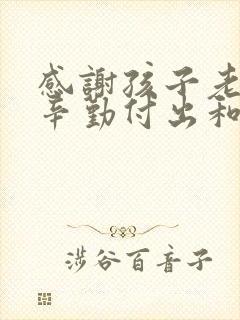 感謝孩子老
辛勤付出和
涉谷百音子